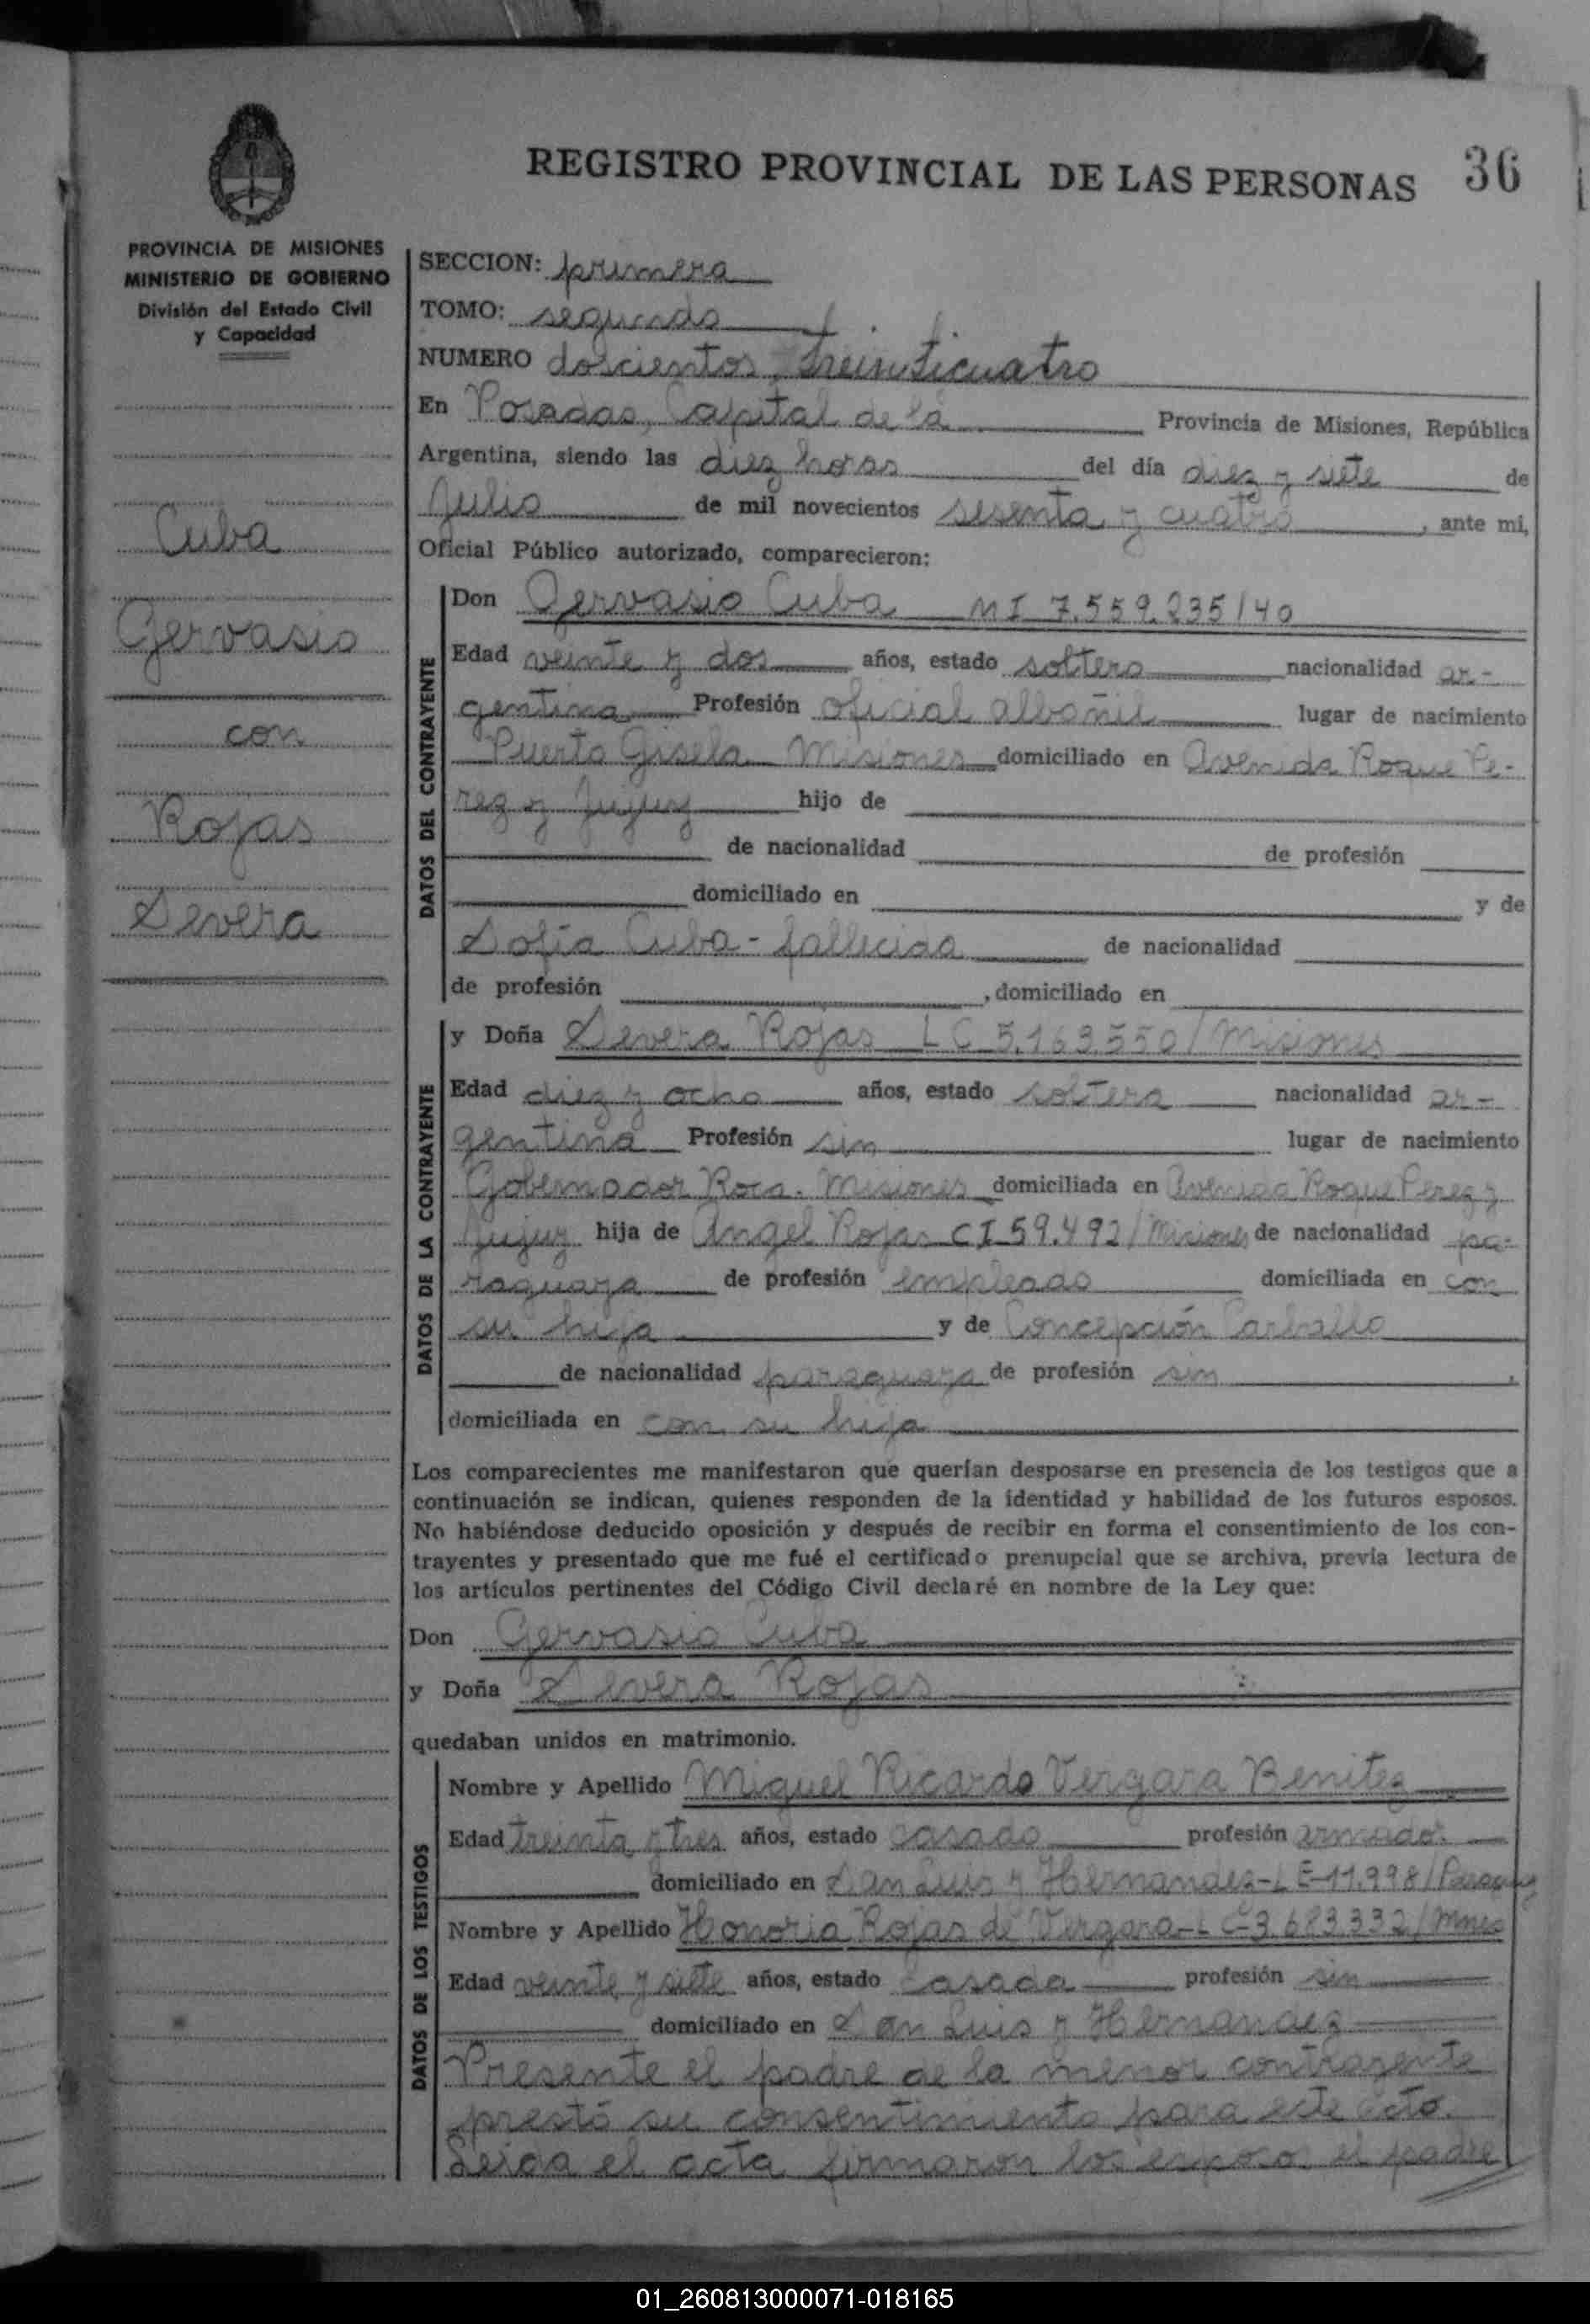 REGISTRO PROVINCIAL DE LAS PERSONAS 36
PROVINCIA DE MISIONES
MINISTERIO DE GOBIERNO
División del Estado Civil
y Capacidad
Cuba
Gervasio
con
Rojas
Severa
SECCION: primera
TOMO: segundo
NUMERO doscientos treinticuatro
En Posadas, Capital de la Provincia de Misiones, República
Argentina, siendo las diez horas del día diez y siete de
Julio de mil novecientos sesenta y cuatro, ante mi,
Oficial Público autorizado, comparecieron:
DATOS DEL CONTRAYENTE
Don Gervasio Cuba MI 7.559.235/40
Edad veinte y dos años, estado soltero nacionalidad ar-
gentina Profesión oficial albañil lugar de nacimiento
Puerto Gisela Misiones domiciliado en Avenida Roque Pe-
rez y Jujuy hijo de
de nacionalidad de profesión
domiciliado en y de
Sofia Cuba - fallecida de nacionalidad
de profesión , domiciliado en
DATOS DE LA CONTRAYENTE
y Doña Severa Rojas LC 5.163.550/Misiones
Edad diez y ocho años, estado soltera nacionalidad ar-
gentina Profesión sin lugar de nacimiento
Gobernador Roca. Misiones domiciliada en Avenida Roque Perez y
Jujuy hija de Angel Rojas CI 59.492/Misiones de nacionalidad pa-
raguaya de profesión empleado domiciliada en con
su hija y de Concepción Carballo
de nacionalidad paraguaya de profesión sin ,
domiciliada en con su hija
Los comparecientes me manifestaron que querían desposarse en presencia de los testigos que a
continuación se indican, quienes responden de la identidad y habilidad de los futuros esposos.
No habiéndose deducido oposición y después de recibir en forma el consentimiento de los con-
trayentes y presentado que me fué el certificado prenupcial que se archiva, previa lectura de
los artículos pertinentes del Código Civil declaré en nombre de la Ley que:
Don Gervasio Cuba
y Doña Severa Rojas
quedaban unidos en matrimonio.
DATOS DE LOS TESTIGOS
Nombre y Apellido Miguel Ricardo Vergara Benitez
Edad treinta y tres años, estado casado profesión armador
domiciliado en San Luis y Hernandez-LE-11.998/Paraguay
Nombre y Apellido Honoria Rojas de Vergara-LC-3.683.332/Mnes
Edad veinte y siete años, estado casada profesión sin
domiciliado en San Luis y Hernandez
Presente el padre de la menor contrayente
prestó su consentimiento para este acto.
Leida el acta firmaron los esposos el padre
01_260813000071-018165